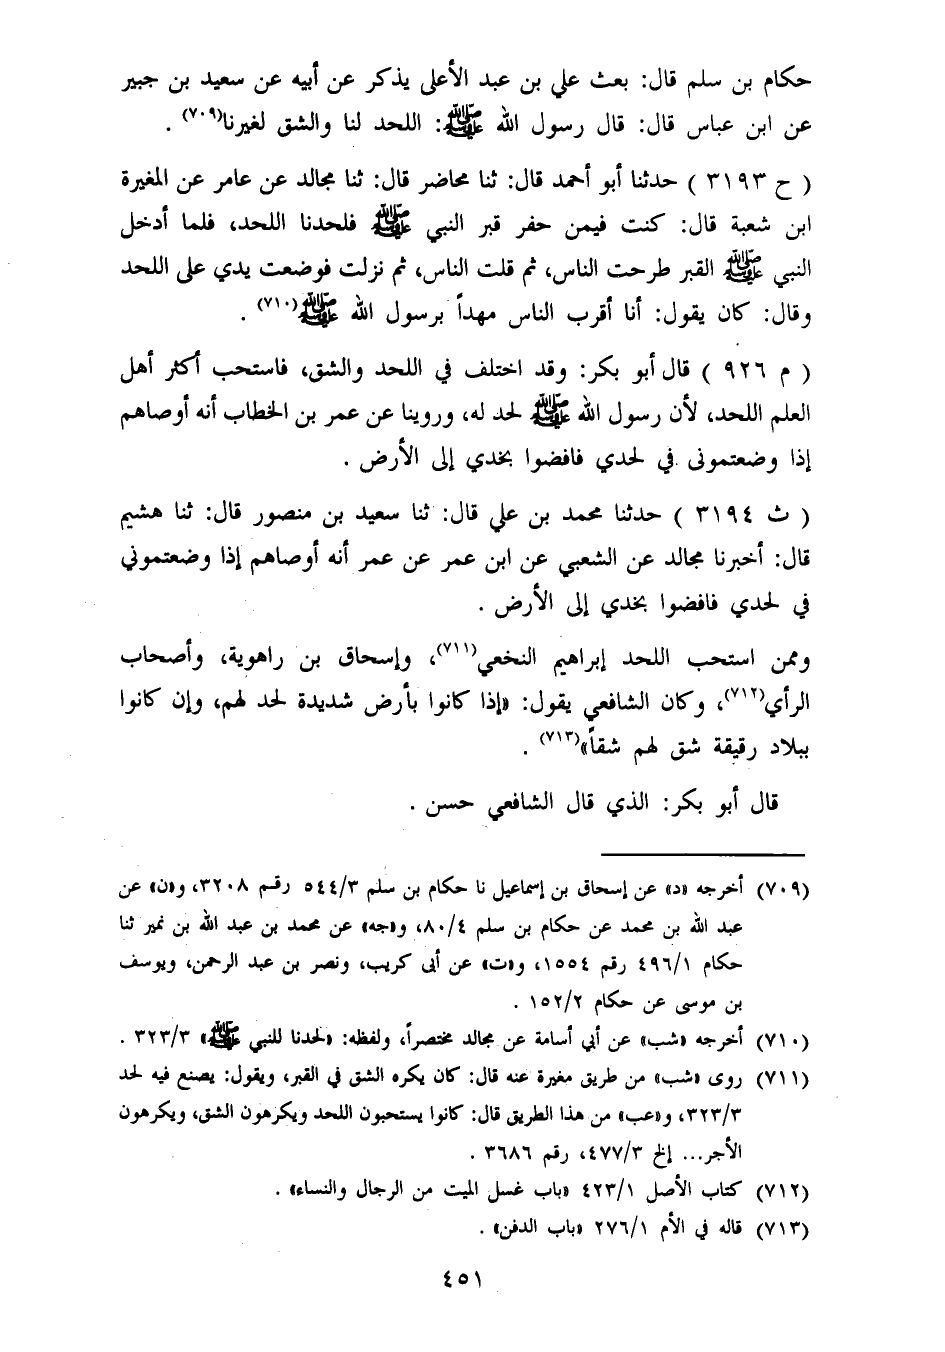 حكام بن سلم قال: بعث علي بن عبد الأعلى يذكر عن أبيه عن سعيد بن جبير
عن ابن عباس قال: قال رسول الله ﷺ: اللحد لنا والشق لغيرنا(٧٠٩) .
( ح ٣١٩٣ ) حدثنا أبو أحمد قال: ثنا محاضر قال: ثنا مجالد عن عامر عن المغيرة
ابن شعبة قال: كنت فيمن حفر قبر النبي ﷺ فلحدنا اللحد، فلما أدخل
النبي ﷺ القبر طرحت الناس، ثم قلت الناس، ثم نزلت فوضعت يدي على اللحد
وقال: كان يقول: أنا أقرب الناس مهداً برسول الله ﷺ(٧١٠) .
( م ٩٢٦ ) قال أبو بكر: وقد اختلف في اللحد والشق، فاستحب أكثر أهل
العلم اللحد، لأن رسول الله ﷺ لحد له، وروينا عن عمر بن الخطاب أنه أوصاهم
إذا وضعتمونى في لحدي فافضوا بخدي إلى الأرض .
( ث ٣١٩٤ ) حدثنا محمد بن علي قال: ثنا سعيد بن منصور قال: ثنا هشيم
قال: أخبرنا مجالد عن الشعبي عن ابن عمر عن عمر أنه أوصاهم إذا وضعتموني
في لحدي فافضوا بخدي إلى الأرض .
وممن استحب اللحد إبراهيم النخعي(٧١١)، وإسحاق بن راهوية، وأصحاب
الرأي(٧١٢)، وكان الشافعي يقول: «إذا كانوا بأرض شديدة لحد لهم، وإن كانوا
ببلاد رقيقة شق لهم شقاً»(٧١٣) .
قال أبو بكر: الذي قال الشافعي حسن .
(٧٠٩) أخرجه «د» عن إسحاق بن إسماعيل نا حكام بن سلم ٥٤٤/٣ رقم ٣٢٠٨، و«ن» عن
عبد الله بن محمد عن حكام بن سلم ٨٠/٤، و«جه» عن محمد بن عبد الله بن نمير ثنا
حكام ٤٩٦/١ رقم ١٥٥٤، و«ت» عن أبى كريب، ونصر بن عبد الرحمن، ويوسف
بن موسى عن حكام ١٥٢/٢ .
(٧١٠) أخرجه «شب» عن أبي أسامة عن مجالد مختصراً، ولفظه: «لحدنا للنبي ﷺ» ٣٢٣/٣ .
(٧١١) روى «شب» من طريق مغيرة عنه قال: كان يكره الشق في القبر، ويقول: يصنع فيه لحد
٣٢٣/٣، و«عب» من هذا الطريق قال: كانوا يستحبون اللحد ويكرهون الشق، ويكرهون
الأجر... إلخ ٤٧٧/٣، رقم ٣٦٨٦ .
(٧١٢) كتاب الأصل ٤٢٣/١ «باب غسل الميت من الرجال والنساء» .
(٧١٣) قاله في الأم ٢٧٦/١ «باب الدفن» .
٤٥١